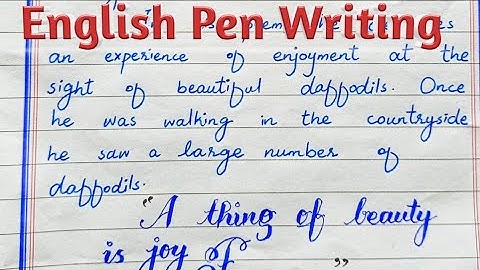 English Pen Writing
an experience of enjoyment at the
sight of beautiful daffodils. Once
he was walking in the countryside
he saw a large number of
daffodils.
"A thing of beauty
is joy
"